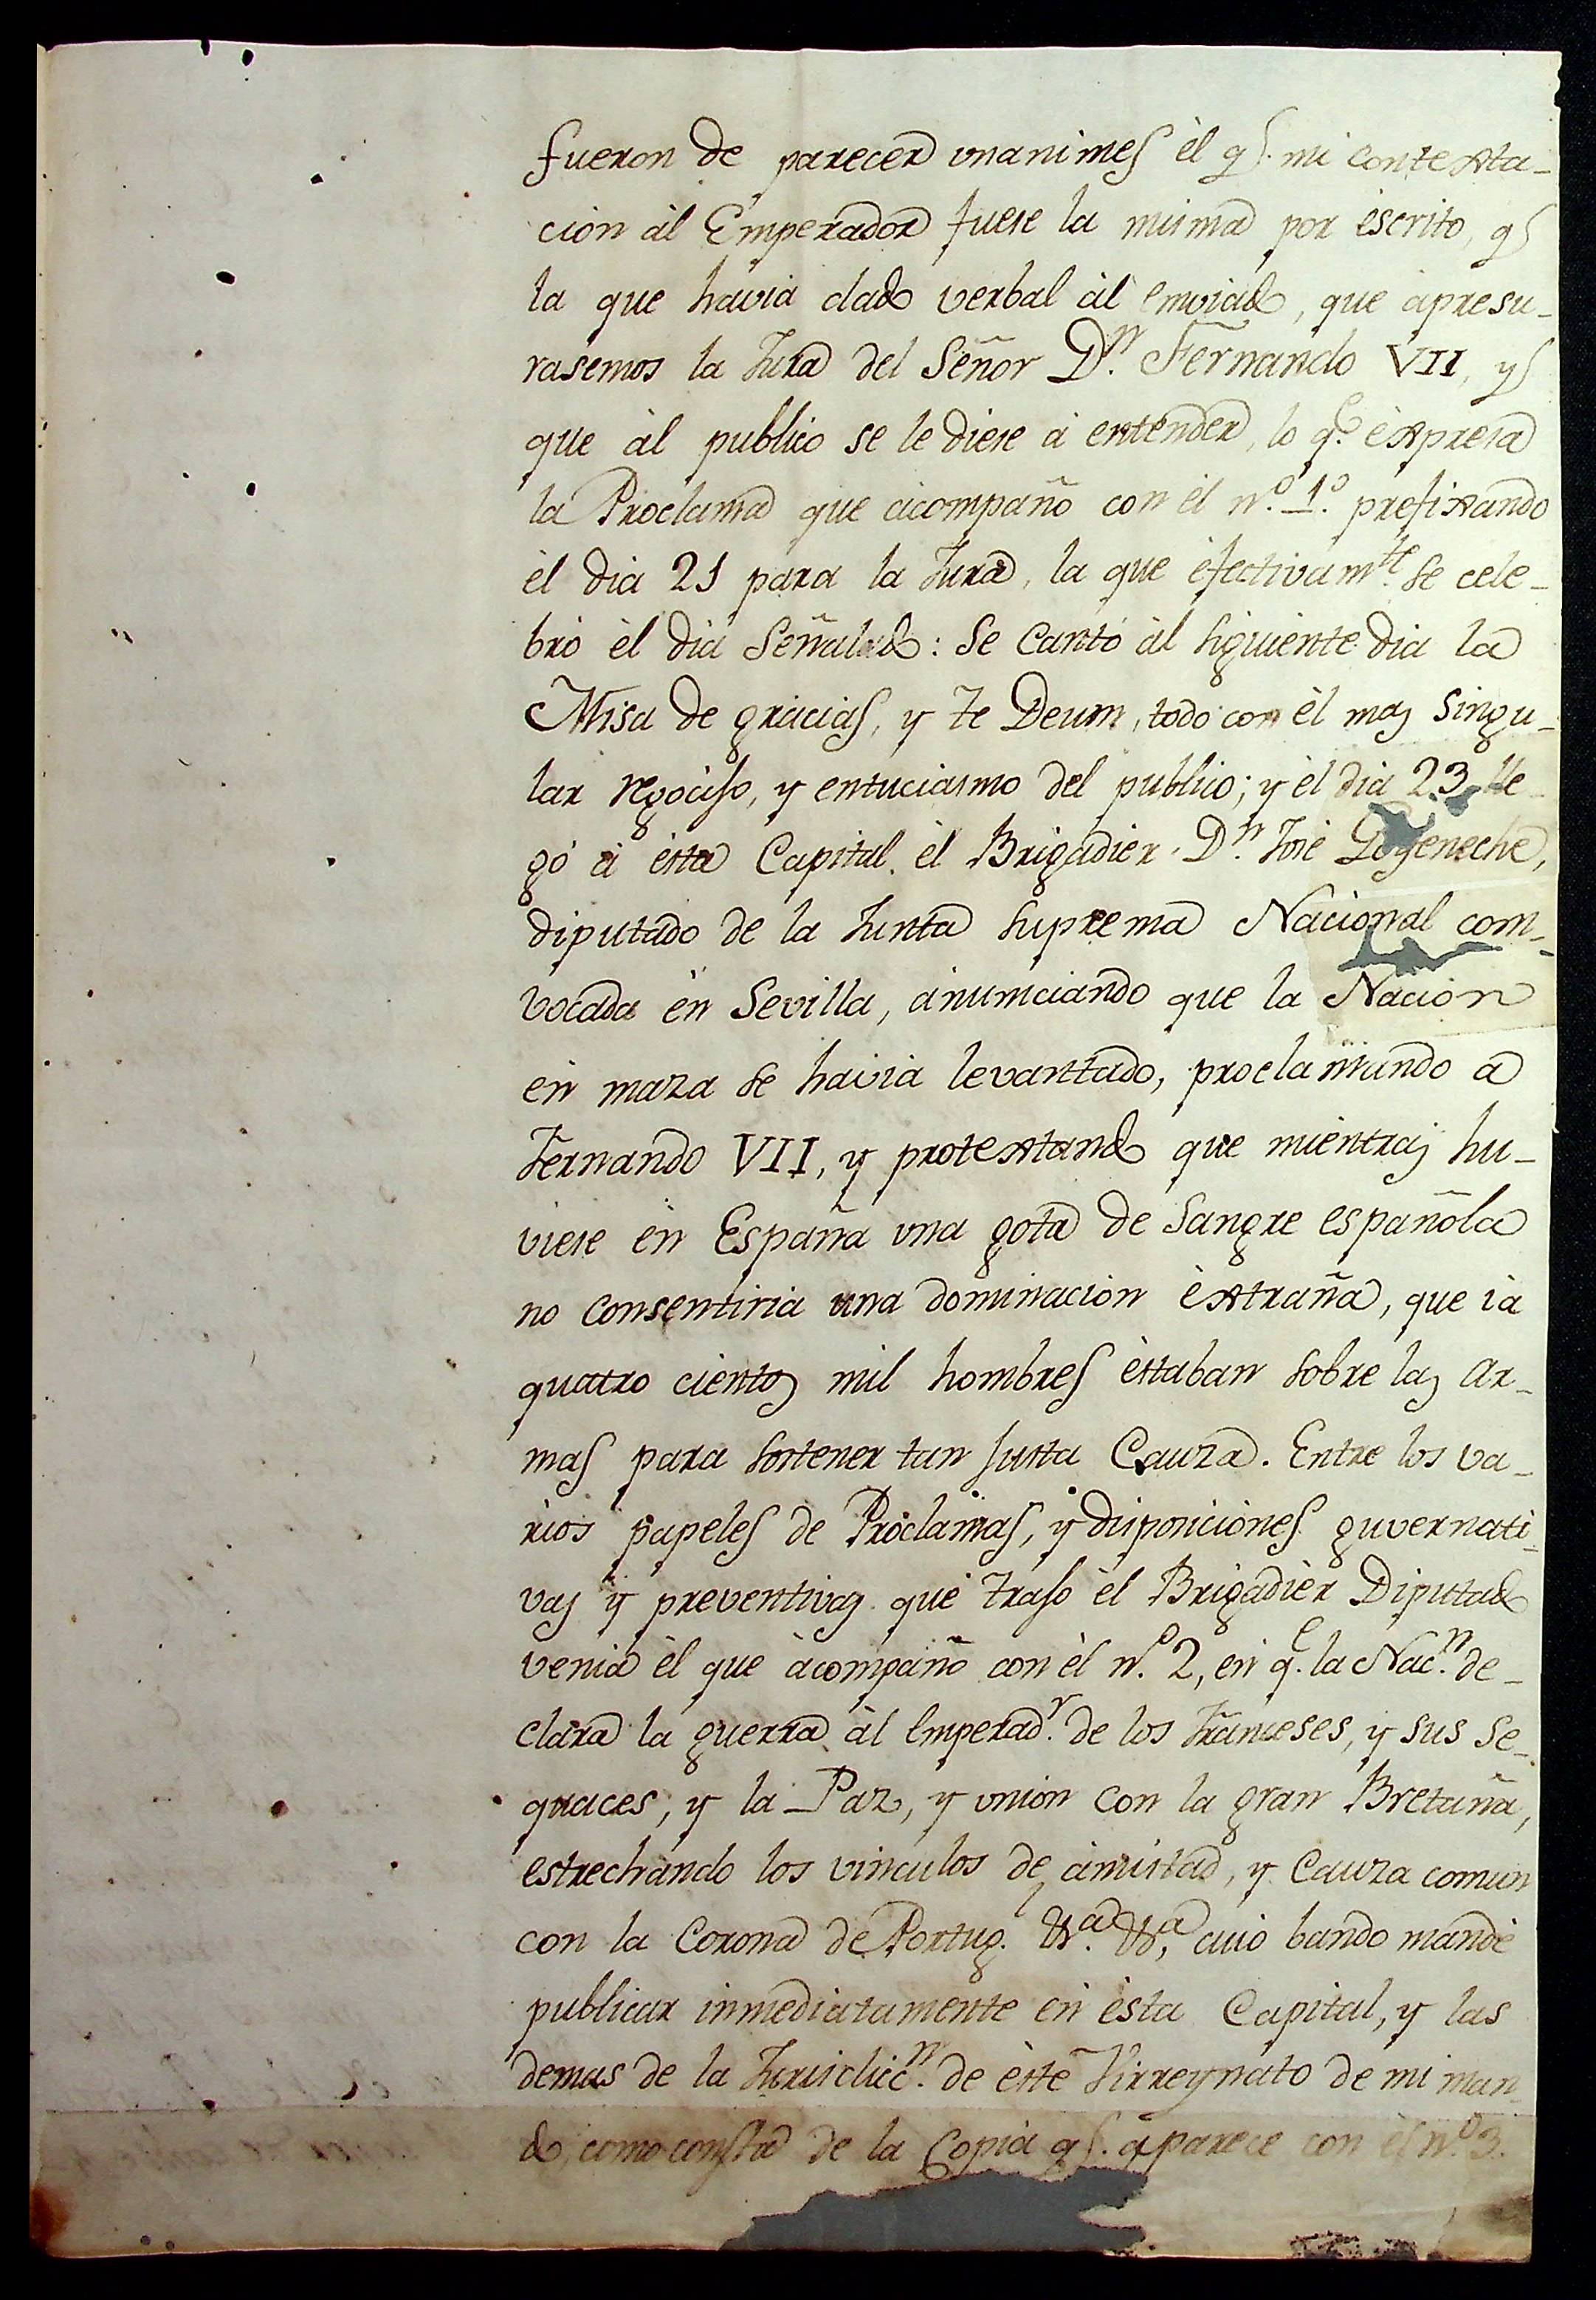 fueron de parecer unanimes èl q.e mi contexta-
cion àl Emperador fuese la misma por èscrito, q.e
la que havia dado verbal àl enviado, que apresu-
rasemos la Jura del Señor D.n Fernando VII, y
que àl publico se le diese à entender, lo q.e èxpresa
la Proclama que acompaño con èl n.o 1.o prefixando
èl dia 21 para la Jura, la que èfectivam.te se cele-
bró èl dia Señalado: Se Cantó àl siguiente dia la
Misa de gracias, y Te Deum, todo con èl mas Singu-
lar regociso, y entuciasmo del publico; y èl dia 23 lle-
gó à èsta Capital èl Brigadier D.n José Goyeneche,
diputado de la Junta Suprema Nacional com-
vocada èn Sevilla, anunciando que la Nacion
èn maza se havia levanttado, proclamando a
Fernando VII, y protextando que mientras hu-
viese èn España una gota de Sangre española
no consentiria una dominacion èxtraña, que ià
quatro cientos mil hombres èstaban sobre las Ar-
mas para sostener tan Justa Cauza. Entre los va-
rios papeles de Proclamas, y disposiciones guvernati-
vas y preventivas que trajo èl Brigadièr Diputado
venia èl que àcompaño con èl n.o 2, èn q.e la Nac.n de-
clara la guerra àl Emperad.r de los Franceses, y sus Se-
quaces, y la Paz, y union con la gran Bretaña,
estrechando los vinculos de amistad, y Cauza comun
con la Corona de Portug.l &.a &.a, cuio bando mandé
publicar inmediatamente èn èsta Capital, y las
demas de la Jurisdicc.n de èste Virreynato de mi man-
do, como consta de la Copia q.e aparece con èl n.o 3.